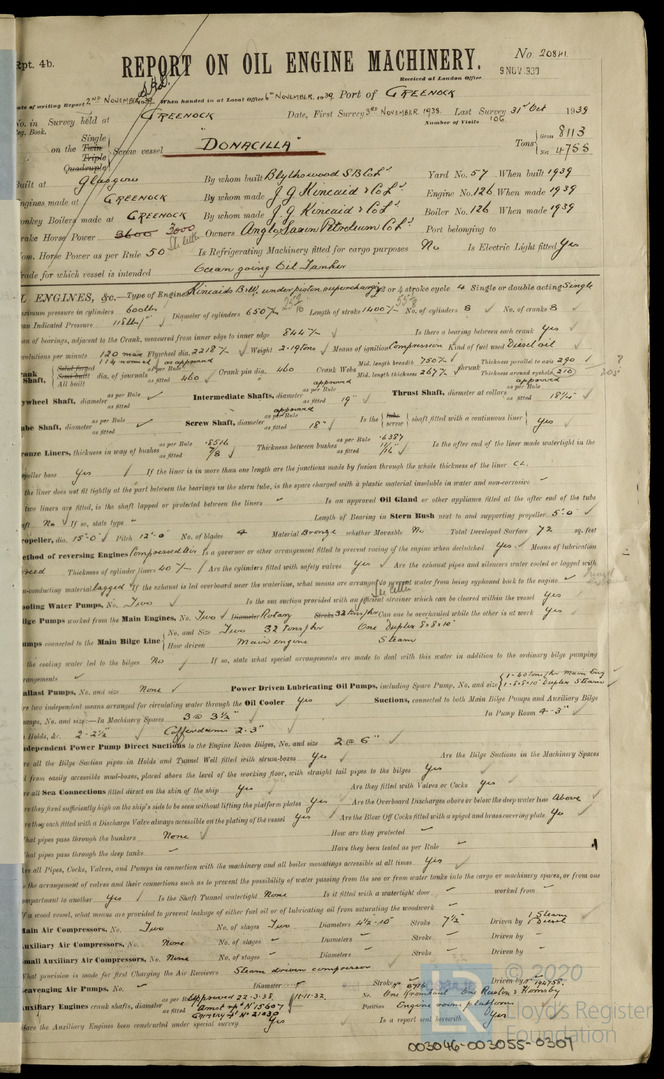 Rpt. 4b.
REPORT ON OIL ENGINE MACHINERY.
No. 20841
Received at London Office 9 NOV 1939
Date of writing Report 2ND NOVEMBER 1939 When handed in at Local Office 6TH NOVEMBER 1939 Port of GREENOCK
No. in Survey held at GREENOCK Date, First Survey 3RD NOVEMBER 1938. Last Survey 31st Oct 1939
Reg. Book. Number of Visits 106
on the Single Twin Triple Quadruple Screw vessel "DONACILLA" Tons Gross 8113 Net 4755
Built at Glasgow By whom built Blythswood S B Co Ld Yard No. 57 When built 1939
Engines made at GREENOCK By whom made J. G. Kincaid & Co Ld Engine No. 126 When made 1939
Donkey Boilers made at GREENOCK By whom made J. G. Kincaid & Co Ld Boiler No. 126 When made 1939
Brake Horse Power 3600 3000 Owners Anglo Saxon Petroleum Co Ld Port belonging to
Nom. Horse Power as per Rule 50 Is Refrigerating Machinery fitted for cargo purposes No Is Electric Light fitted Yes
Trade for which vessel is intended Ocean going Oil Tanker
OIL ENGINES, &c.—Type of Engines Kincaids B&W, underpiston supercharge 2 or 4 stroke cycle 4 Single or double acting Single
Maximum pressure in cylinders 600 lbs Diameter of cylinders 650 m/m Length of stroke 1400 m/m No. of cylinders 8 No. of cranks 8
Mean Indicated Pressure 118 lbs/"
Span of bearings, adjacent to the Crank, measured from inner edge to inner edge 844 m/m Is there a bearing between each crank Yes
Revolutions per minute 120 max 114 normal Flywheel dia. 2218 m/m Weight 2.19 tons Means of ignition Compression Kind of fuel used Diesel oil
Crank Shaft, Solid forged Semi built All built dia. of journals as per Rule approved as fitted 460 Crank pin dia. 460 Crank Webs Mid. length breadth 750 m/m Mid. length thickness 267 m/m shrunk Thickness parallel to axis 290 Thickness around eyehole 210
Flywheel Shaft, diameter as per Rule as fitted Intermediate Shafts, diameter as per Rule approved as fitted 19" Thrust Shaft, diameter at collars as per Rule approved as fitted 18 1/4"
Tube Shaft, diameter as per Rule as fitted Screw Shaft, diameter as per Rule approved as fitted 18" Is the tube screw shaft fitted with a continuous liner Yes
Bronze Liners, thickness in way of bushes as per Rule .8516 as fitted 7/8 Thickness between bushes as per Rule .6387 as fitted 11/16 Is the after end of the liner made watertight in the
propeller boss Yes If the liner is in more than one length are the junctions made by fusion through the whole thickness of the liner CL.
If the liner does not fit tightly at the part between the bearings in the stern tube, is the space charged with a plastic material insoluble in water and non-corrosive
If two liners are fitted, is the shaft lapped or protected between the liners Is an approved Oil Gland or other appliance fitted at the after end of the tube
shaft No If so, state type Length of Bearing in Stern Bush next to and supporting propeller 5'-0"
Propeller, dia. 15'-0" Pitch 12'-0" No. of blades 4 Material Bronze whether Moveable No Total Developed Surface 72 sq. feet
Method of reversing Engines Compressed Air Is a governor or other arrangement fitted to prevent racing of the engine when declutched Yes Means of lubrication
forced Thickness of cylinder liners 40 m/m Are the cylinders fitted with safety valves Yes Are the exhaust pipes and silencers water cooled or lagged with
non-conducting material lagged If the exhaust is led overboard near the waterline, what means are arranged to prevent water from being syphoned back to the engine
Cooling Water Pumps, No. Two Is the sea suction provided with an efficient strainer which can be cleared within the vessel Yes
Bilge Pumps worked from the Main Engines, No. Two Diameter Rotary Stroke 32 tons/hr Can one be overhauled while the other is at work Yes
Pumps connected to the Main Bilge Line No. and Size Two 32 tons/hr One Duplex 8x8x10"
How driven Main engine Steam
Is the cooling water led to the bilges No If so, state what special arrangements are made to deal with this water in addition to the ordinary bilge pumping
arrangements
Ballast Pumps, No. and size None Power Driven Lubricating Oil Pumps, including Spare Pump, No. and size
Are two independent means arranged for circulating water through the Oil Cooler Yes Suctions, connected to both Main Bilge Pumps and Auxiliary Bilge
Pumps, No. and size:—In Machinery Spaces 3 @ 3 1/2" In Pump Room 4-3"
In Holds, &c. 2-2 1/2" Cofferdams 2-3"
Independent Power Pump Direct Suctions to the Engine Room Bilges, No. and size 2 @ 6"
Are all the Bilge Suction pipes in Holds and Tunnel Well fitted with strum-boxes Yes Are the Bilge Suctions in the Machinery Spaces
led from easily accessible mud-boxes, placed above the level of the working floor, with straight tail pipes to the bilges Yes
Are all Sea Connections fitted direct on the skin of the ship Yes Are they fitted with Valves or Cocks Yes
Are they fixed sufficiently high on the ship's side to be seen without lifting the platform plates Yes Are the Overboard Discharges above or below the deep water line Above
Are they each fitted with a Discharge Valve always accessible on the plating of the vessel Yes Are the Blow Off Cocks fitted with a spigot and brass covering plate Yes
What pipes pass through the bunkers None How are they protected
What pipes pass through the deep tanks Have they been tested as per Rule
Are all Pipes, Cocks, Valves, and Pumps in connection with the machinery and all boiler mountings accessible at all times Yes
Is the arrangement of valves and their connections such as to prevent the possibility of water passing from the sea or from water tanks into the cargo or machinery spaces, or from one
compartment to another Yes Is the Shaft Tunnel watertight None Is it fitted with a watertight door worked from
If a wood vessel, what means are provided to prevent leakage of either fuel oil or of lubricating oil from saturating the woodwork
Main Air Compressors, No. Two No. of stages Two Diameters 4 1/2-10" Stroke 7 1/2" Driven by 1 Steam 1 Diesel
Auxiliary Air Compressors, No. None No. of stages Diameters Stroke Driven by
Small Auxiliary Air Compressors, No. None No. of stages Diameters Stroke Driven by
What provision is made for first Charging the Air Receivers Steam driven compressor
Scavenging Air Pumps, No. Diameter Stroke Driven by
Auxiliary Engines crank shafts, diameter as per Rule Approved 22-3-38 as fitted Position Engine room platform
Have the Auxiliary Engines been constructed under special survey Yes Is a report sent herewith Yes
© 2020
Lloyd's Register
Foundation
003046-003055-0307